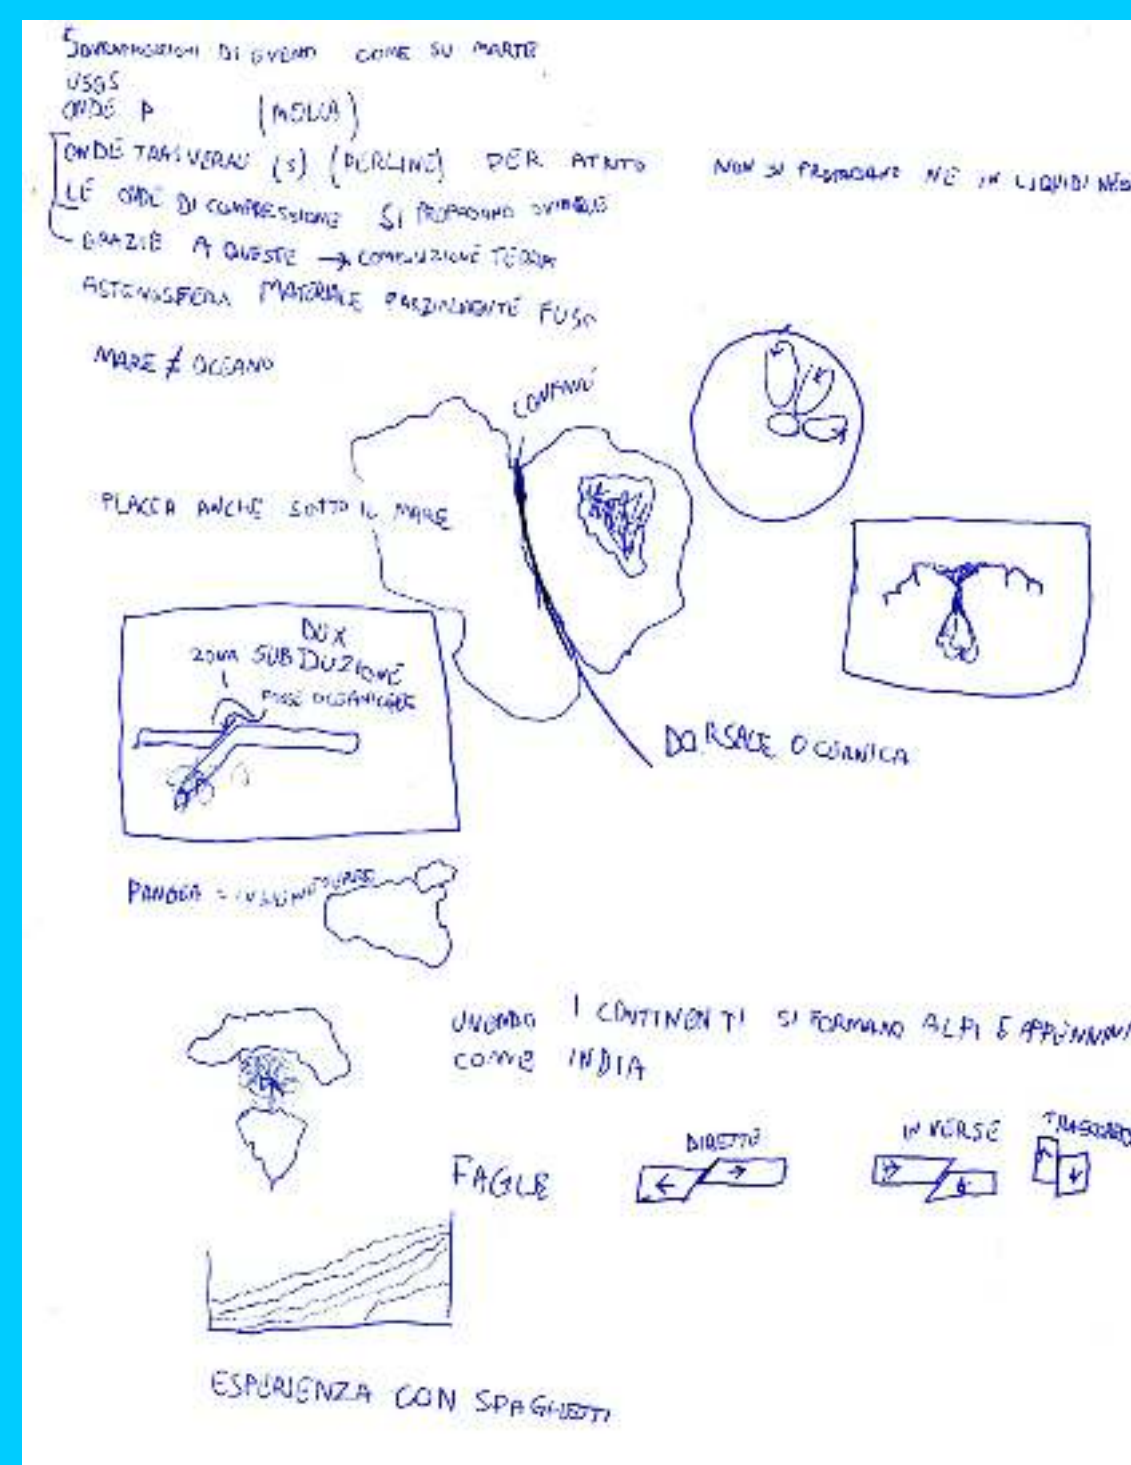 DI COME SU MARTE
USGS
ONDE P (MOLLA)
ONDE TRASVERALI (S) (PERLINE) PER ATRITO NON SI NE IN LIQUIDI
LE ONDE DI COMPRESSIONE SI PROPAGANO
GRAZIE A QUESTE → TERRA
ASTENOSFERA MATERIALE PARZIALMENTE FUSO
MARE ≠ OCEANO
CONFINE
PLACCA ANCHE SOTTO IL MARE
ZONA SUBDUZIONE
FOSSE OCEANICHE
DORSALE OCEANICA
PANGEA =
UNENDO I CONTINENTI SI FORMANO ALPI E APPENNINI
COME INDIA
FAGLE DIRETTE INVERSE
ESPERIENZA CON SPAGHETTI